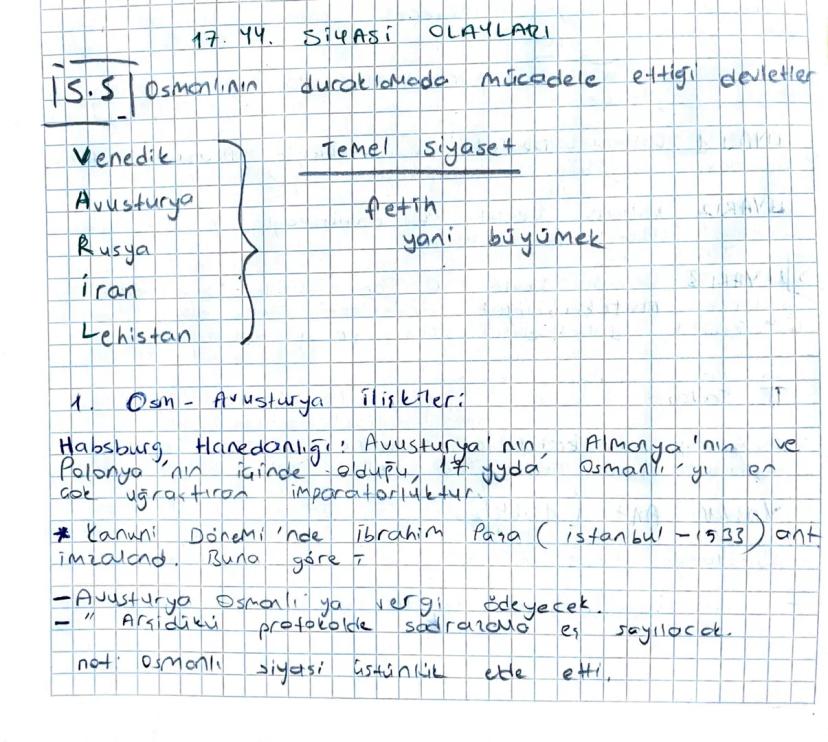 17. YY. SİYASİ OLAYLARI
S.5 Osmanlının duraklamada mücadele ettiği devletler
Venedik
Avusturya
Rusya
İran
Lehistan
Temel siyaset
fetih
yani büyümek
1. Osm - Avusturya ilişkileri:
Habsburg Hanedanlığı: Avusturya'nın, Almanya'nın ve
Polonya'nın içinde olduğu, 17 yyda Osmanlı'yı en
çok uğraştıran imparatorluktur.
* Kanuni Dönemi'nde İbrahim Paşa (İstanbul - 1533) ant
imzaland. Buna göre;
- Avusturya Osmanlı'ya vergi ödeyecek.
- " Arşidükü protokolde sadrazama eş sayılacak.
not: Osmanlı siyasi üstünlük elde etti.